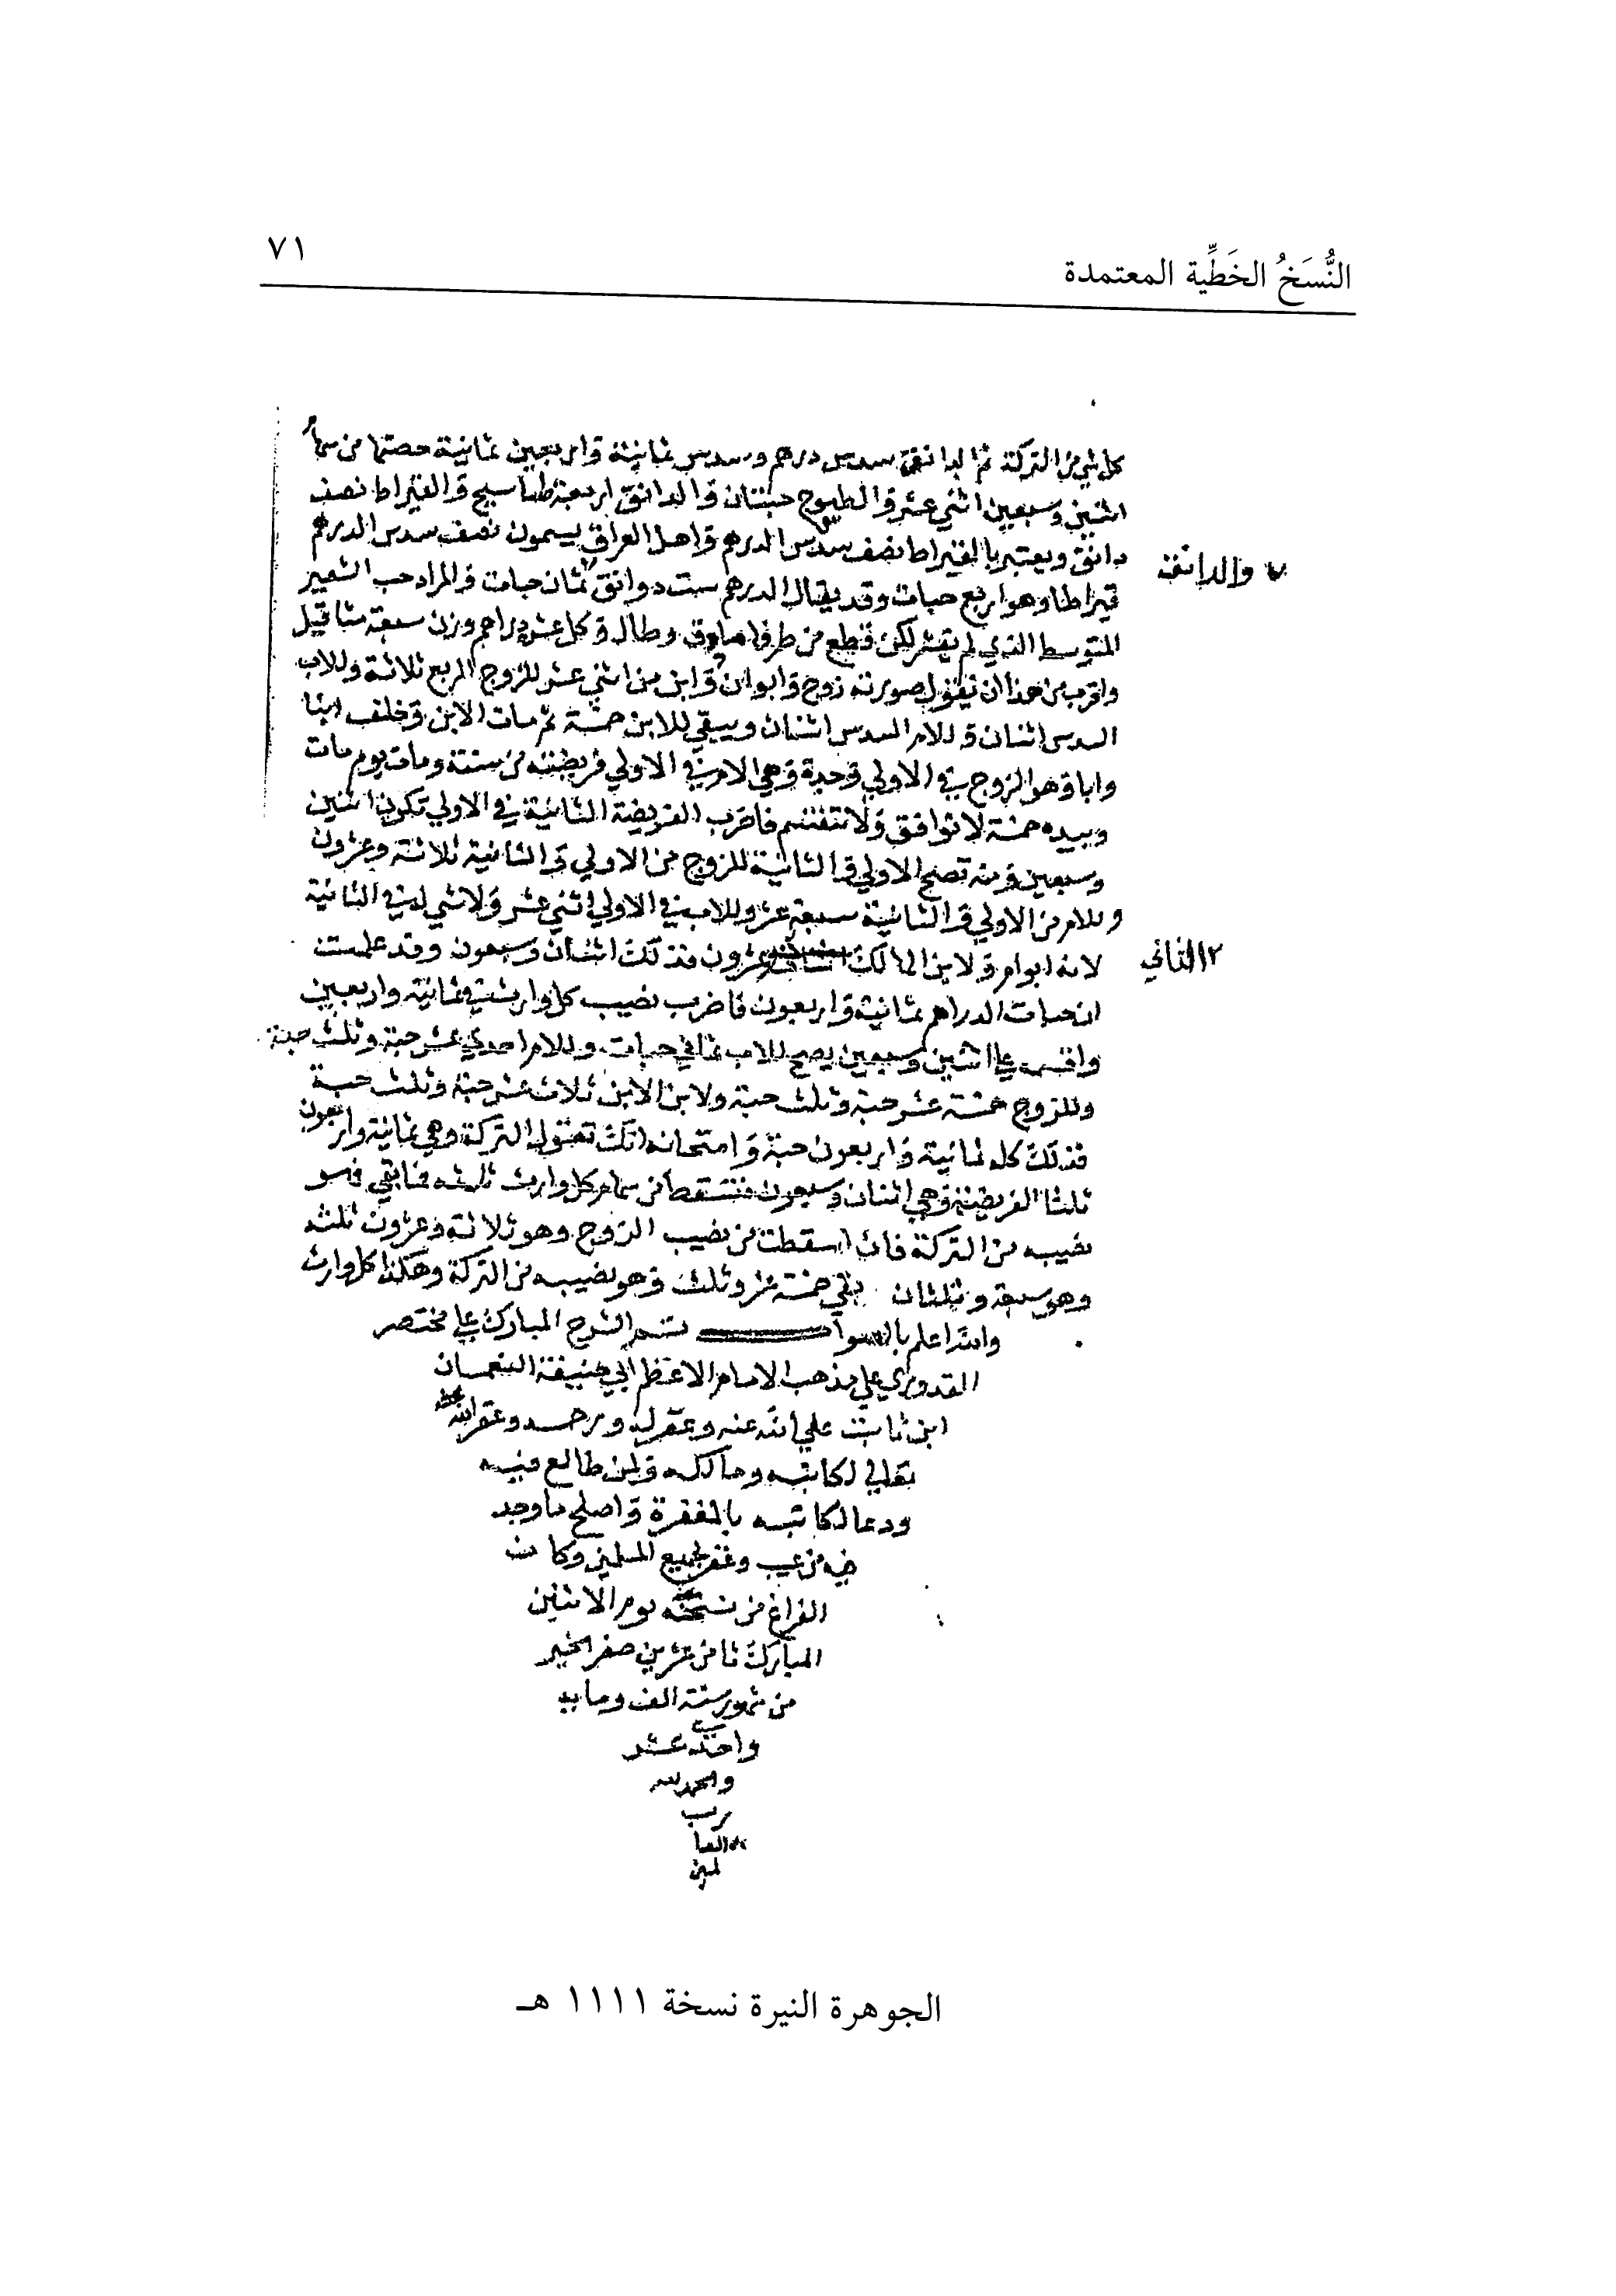 النُّسَخُ الخَطِّية المعتمدة
٧١
كل شي من التركة ثم الدانق سدس درهم وسدس ثمانية واربعين ثمانية حصتها من سهام
اثنين وسبعين اثني عشر والطسوج حبتان والدانق اربعة طساسيج والقيراط نصف
دانق ويعتبر بالقيراط نصف سدس الدرهم واهل العراق يسمون نصف سدس الدرهم
والدانق
قيراطا وهو اربع حبات وقد يقال الدرهم ست دوانق ثمان حبات والمراد حب الشعير
المتوسط الذي لم يقشر لكن قطع من طرفا مادق وطال وكل عشر دراهم وزن سبعة مثاقيل
واقرب من هذا ان تقول صورته زوج وابوان وابن من اثني عشر للزوج الربع ثلاثة وللاب
السدس اثنان وللام السدس اثنان ويبقي للابن خمسة ثم مات الابن وخلف ابنا
وابا وهو الزوج في الاولي وجدة وهي الام في الاولي فريضته من ستة ومات يوم مات
وبيده خمسة لا توافق ولا تنقسم فاضرب الفريضة الثانية في الاولي تكون اثنين
وسبعين ومنه تصح الاولي والثانية للزوج من الاولي والثانية ثلاثة وعشرون
وللام من الاولي والثانية سبعة عشر وللاب في الاولي اثني عشر ولا شي له في الثانية
لانه ابو ام ولابن الهالك عشرون فذلك اثنان وسبعون وقد علمت
٢ الثاني
ان حبات الدراهم ثمانية واربعون فاضرب نصيب كل وارث في ثمانية واربعين
واقسمه علي اثنين وسبعين يصح للاب ثماني حبات وللام احدي عشر حبة وثلث حبة
وللزوج خمسة عشر حبة وثلث حبة ولابن الابن ثلاث عشر حبة وثلث حبة
فذلك كله ثمانية واربعون حبة وامتحانه انك تقول التركة وهي ثمانية واربعون
ثلثا الفريضة وهي اثنان وسبعون فتسقط من سهام كل وارث ثلثه فما بقي فهو
نصيبه من التركة فان اسقطت من نصيب الزوج وهو ثلاثة وعشرون ثلثه
وهو سبعة وثلثان بقي خمسة عشر وثلث وهو نصيبه من التركة وهكذا كل وارث
والله اعلم بالصواب تم الشرح المبارك علي مختصر
القدوري علي مذهب الامام الاعظم ابي حنيفة النعمان
ابن ثابت الله عنه وغفر له ورحمه وغفر الله
تعالي لكاتبه ومالكه ولمن طالع فيه
ودعا لكاتبه بالمغفرة واصلح ما وجد
فيه من عيب وغفر لجميع المسلمين وكان
الفراغ من نسخه يوم الاثنين
المبارك ثامن عشرين صفر الخير
من شهور سنة الف ومايه
واحد عشر
والحمد لله
رب
العا
لمين
الجوهرة النيرة نسخة ١١١١ هـ